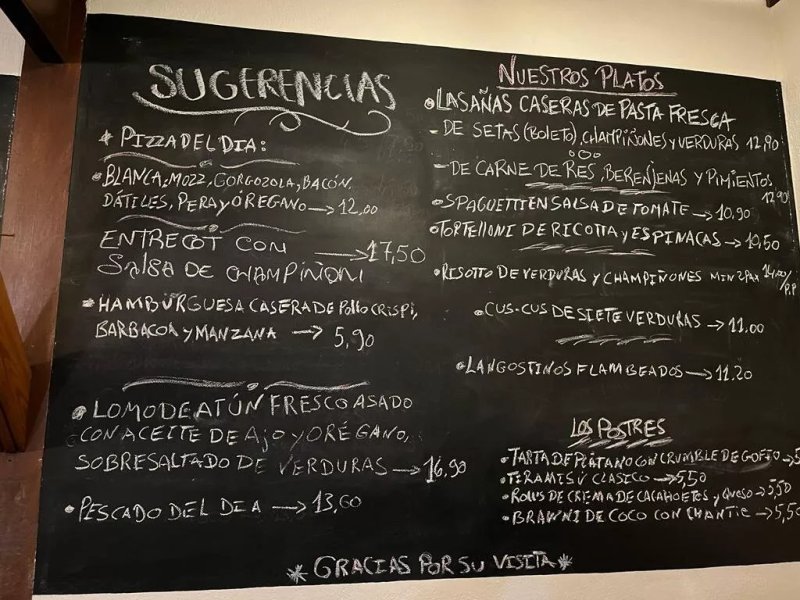 SUGERENCIAS
* PIZZA DEL DIA:
• BLANCA, MOZZ, GORGOZOLA, BACÓN,
DÁTILES, PERA Y OREGANO → 12,00
ENTRECOT CON → 17,50
SALSA DE CHAMPIÑON
• HAMBURGUESA CASERA DE POLLO CRISPI,
BARBACOA Y MANZANA → 5,90
• LOMO DE ATÚN FRESCO ASADO
CON ACEITE DE AJO Y ORÉGANO,
SOBRESALTADO DE VERDURAS → 16,90
• PESCADO DEL DIA → 13,60
NUESTROS PLATOS
• LASAÑAS CASERAS DE PASTA FRESCA
- DE SETAS (BOLETO), CHAMPIÑONES Y VERDURAS 12,90
- DE CARNE DE RES, BERENJENAS Y PIMIENTOS
12,90
• SPAGUETTI EN SALSA DE TOMATE → 10,90
• TORTELLONI DE RICOTTA Y ESPINACAS → 10,50
• RISOTTO DE VERDURAS Y CHAMPIÑONES MIN 2 PAX 14,00/P.P
• CUS-CUS DE SIETE VERDURAS → 11,00
• LANGOSTINOS FLAMBEADOS → 11,20
LOS POSTRES
• TARTA DE PLÁTANO CON CRUMBLE DE GOFIO → 5
• TERAMISÚ CLASICO → 5,50
• ROLLS DE CREMA DE CACAHOETES Y QUESO → 5,50
• BRAWNI DE COCO CON CHANTIE → 5,50
* GRACIAS POR SU VISITA *